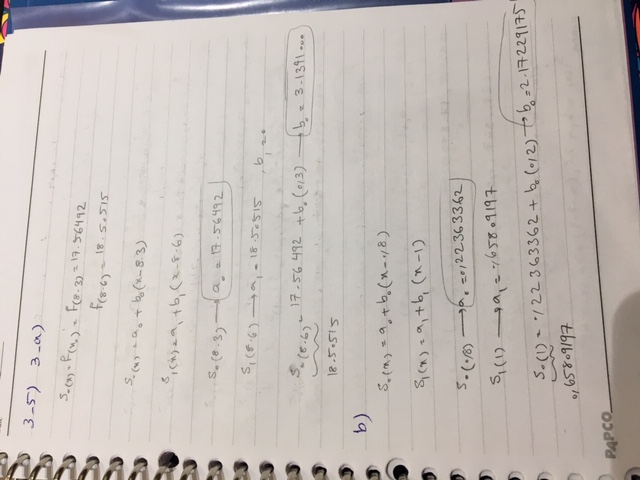 3-5) 3-a)
S₀(x) = f(x₀) = f(8.3) = 17.56492
f(8.6) = 18.50515
S₀(x) = a₀ + b₀(x-8.3)
S₁(x) = a₁ + b₁(x-8.6)
S₀(8.3) → a₀ = 17.56492
S₁(8.6) → a₁ = 18.50515 , b₁ = 0
S₀(8.6) = 17.56492 + b₀(0,3) → b₀ = 3.1341000
18.50515
b)
S₀(x) = a₀ + b₀(x-0,8)
S₁(x) = a₁ + b₁(x-1)
S₀(0,8) → a₀ = 0,22363362
S₁(1) → a₁ = 0,65809197
S₀(1) = 0,22363362 + b₀(0,2) → b₀ = 2.17229175
0,65809197
PAPCO